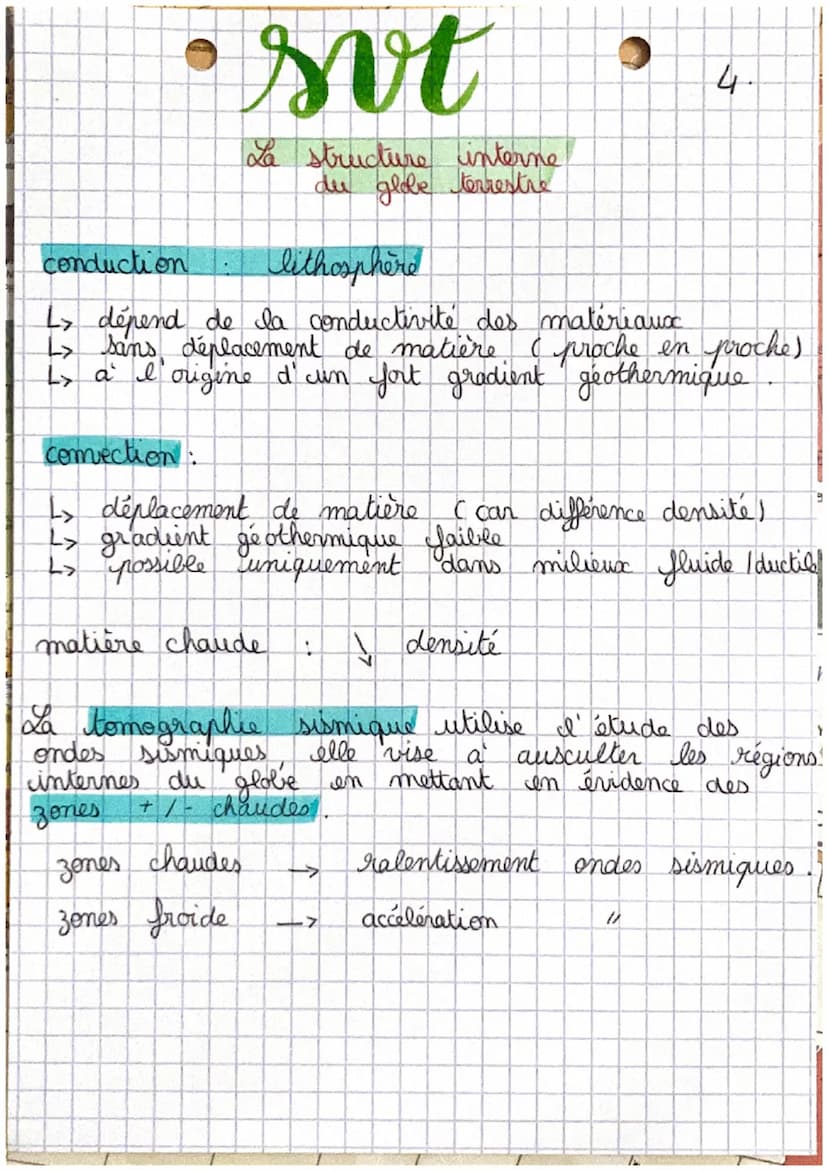 svt
4.
La structure interne
du globe terrestre
conduction : lithosphère
↳ dépend de la conductivité des matériaux
↳ sans déplacement de matière (proche en proche)
↳ à l'origine d'un fort gradient géothermique.
convection :
↳ déplacement de matière (car différence densité)
↳ gradient géothermique faible
↳ possible uniquement dans milieux fluide / ductile
matière chaude : ↘ densité
La tomographie sismique utilise l'étude des
ondes sismiques, elle vise à ausculter les régions
internes du globe en mettant en évidence des
zones + / - chaudes.
zones chaudes → ralentissement ondes sismiques.
zones froide → accélération "